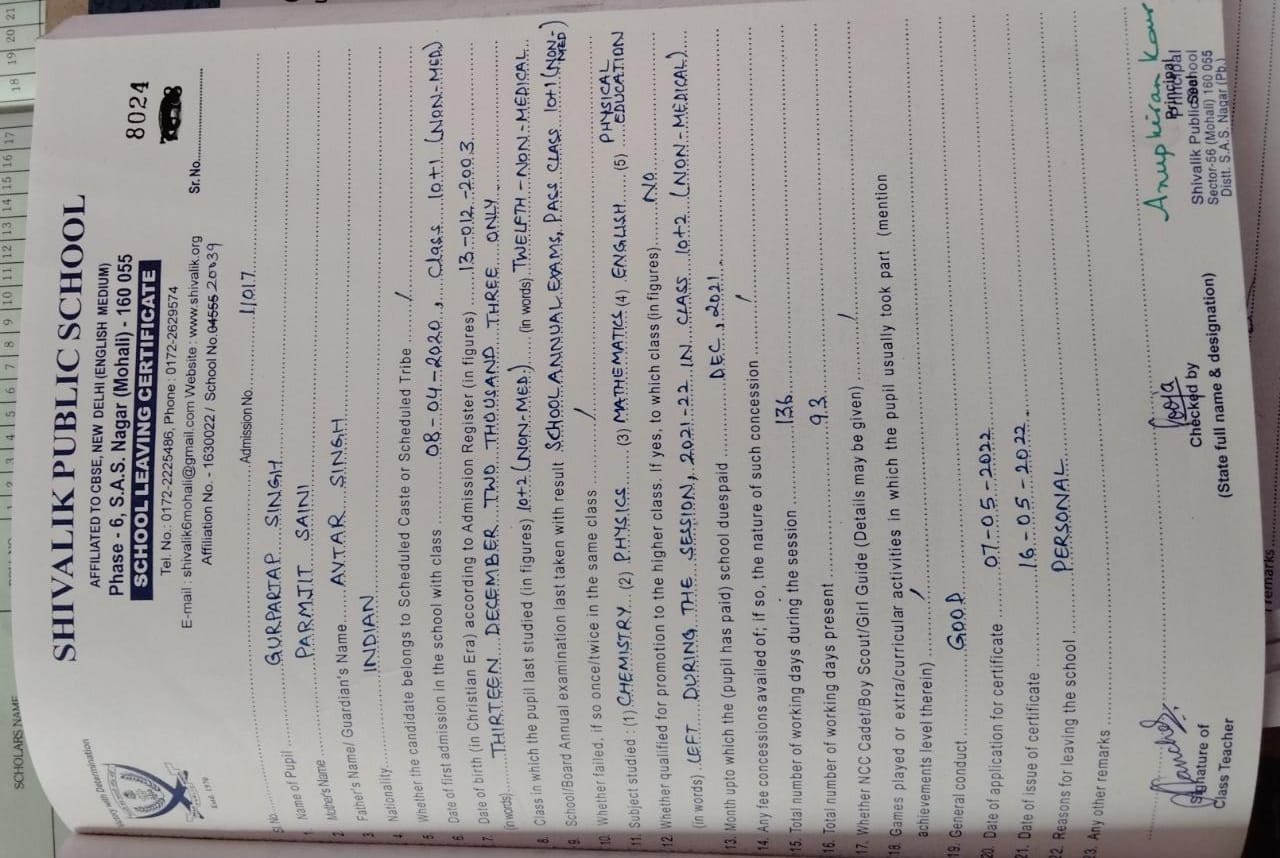 SCHOLARS NAME
1 2 3 4 5 6 7 8 9 10 11 12 13 14 15 16 17
18 19 20 21
with Determination
Estd. 1970
SHIVALIK PUBLIC SCHOOL
AFFILIATED TO CBSE, NEW DELHI (ENGLISH MEDIUM)
Phase - 6, S.A.S. Nagar (Mohali) - 160 055
SCHOOL LEAVING CERTIFICATE
8024
Tel. No.: 0172-2225486, Phone : 0172-2629574
E-mail : shivalik6mohali@gmail.com Website : www.shivalik.org
Sr. No.
Affiliation No. - 1630022 / School No. 04555 20839
Sl. No. Admission No. 11017
1. Name of Pupil GURPARTAP SINGH
2. Mother's Name PARMJIT SAINI
3. Father's Name/ Guardian's Name AVTAR SINGH
4. Nationality INDIAN
5. Whether the candidate belongs to Scheduled Caste or Scheduled Tribe /
6. Date of first admission in the school with class 08-04-2020, Class 10+1 (NON-MED)
7. Date of birth (in Christian Era) according to Admission Register (in figures) 13-012-2003
(in words) THIRTEEN DECEMBER TWO THOUSAND THREE ONLY
8. Class in which the pupil last studied (in figures) 10+2 (NON-MED.) (in words) TWELFTH-NON-MEDICAL
9. School/Board Annual examination last taken with result SCHOOL ANNUAL EXAMS, PASS CLASS 10+1 (NON-MED)
10. Whether failed, if so once/twice in the same class /
11. Subject studied : (1) CHEMISTRY (2) PHYSICS (3) MATHEMATICS (4) ENGLISH (5) PHYSICAL EDUCATION
12. Whether qualified for promotion to the higher class. If yes, to which class (in figures) NO
(in words) LEFT DURING THE SESSION, 2021-22 IN CLASS 10+2 (NON-MEDICAL)
13. Month upto which the (pupil has paid) school duespaid DEC, 2021
14. Any fee concessions availed of; if so, the nature of such concession /
15. Total number of working days during the session 136
16. Total number of working days present 93
17. Whether NCC Cadet/Boy Scout/Girl Guide (Details may be given) /
18. Games played or extra/curricular activities in which the pupil usually took part (mention
achievements level therein) /
19. General conduct GOOD
20. Date of application for certificate 07-05-2022
21. Date of issue of certificate 16-05-2022
22. Reasons for leaving the school PERSONAL
23. Any other remarks
Signature of
Class Teacher
Pooja
Checked by
(State full name & designation)
Anupkiran Kaur
Principal
Principal
Seal
Shivalik Public School
Sector-56 (Mohali) 160 055
Distt. S.A.S. Nagar (Pb.)
Remarks